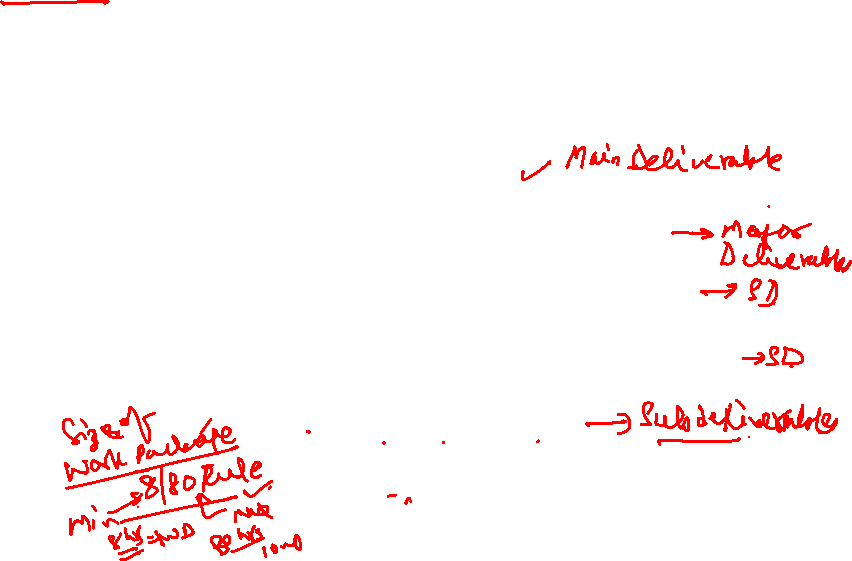 Main Deliverable
→ Major
Deliverable
→ SD
→ SD
→ Subdeliverable
Size of
Work Package
8/80 Rule
min
max
8 hrs = 1WD
80 hrs
10WD